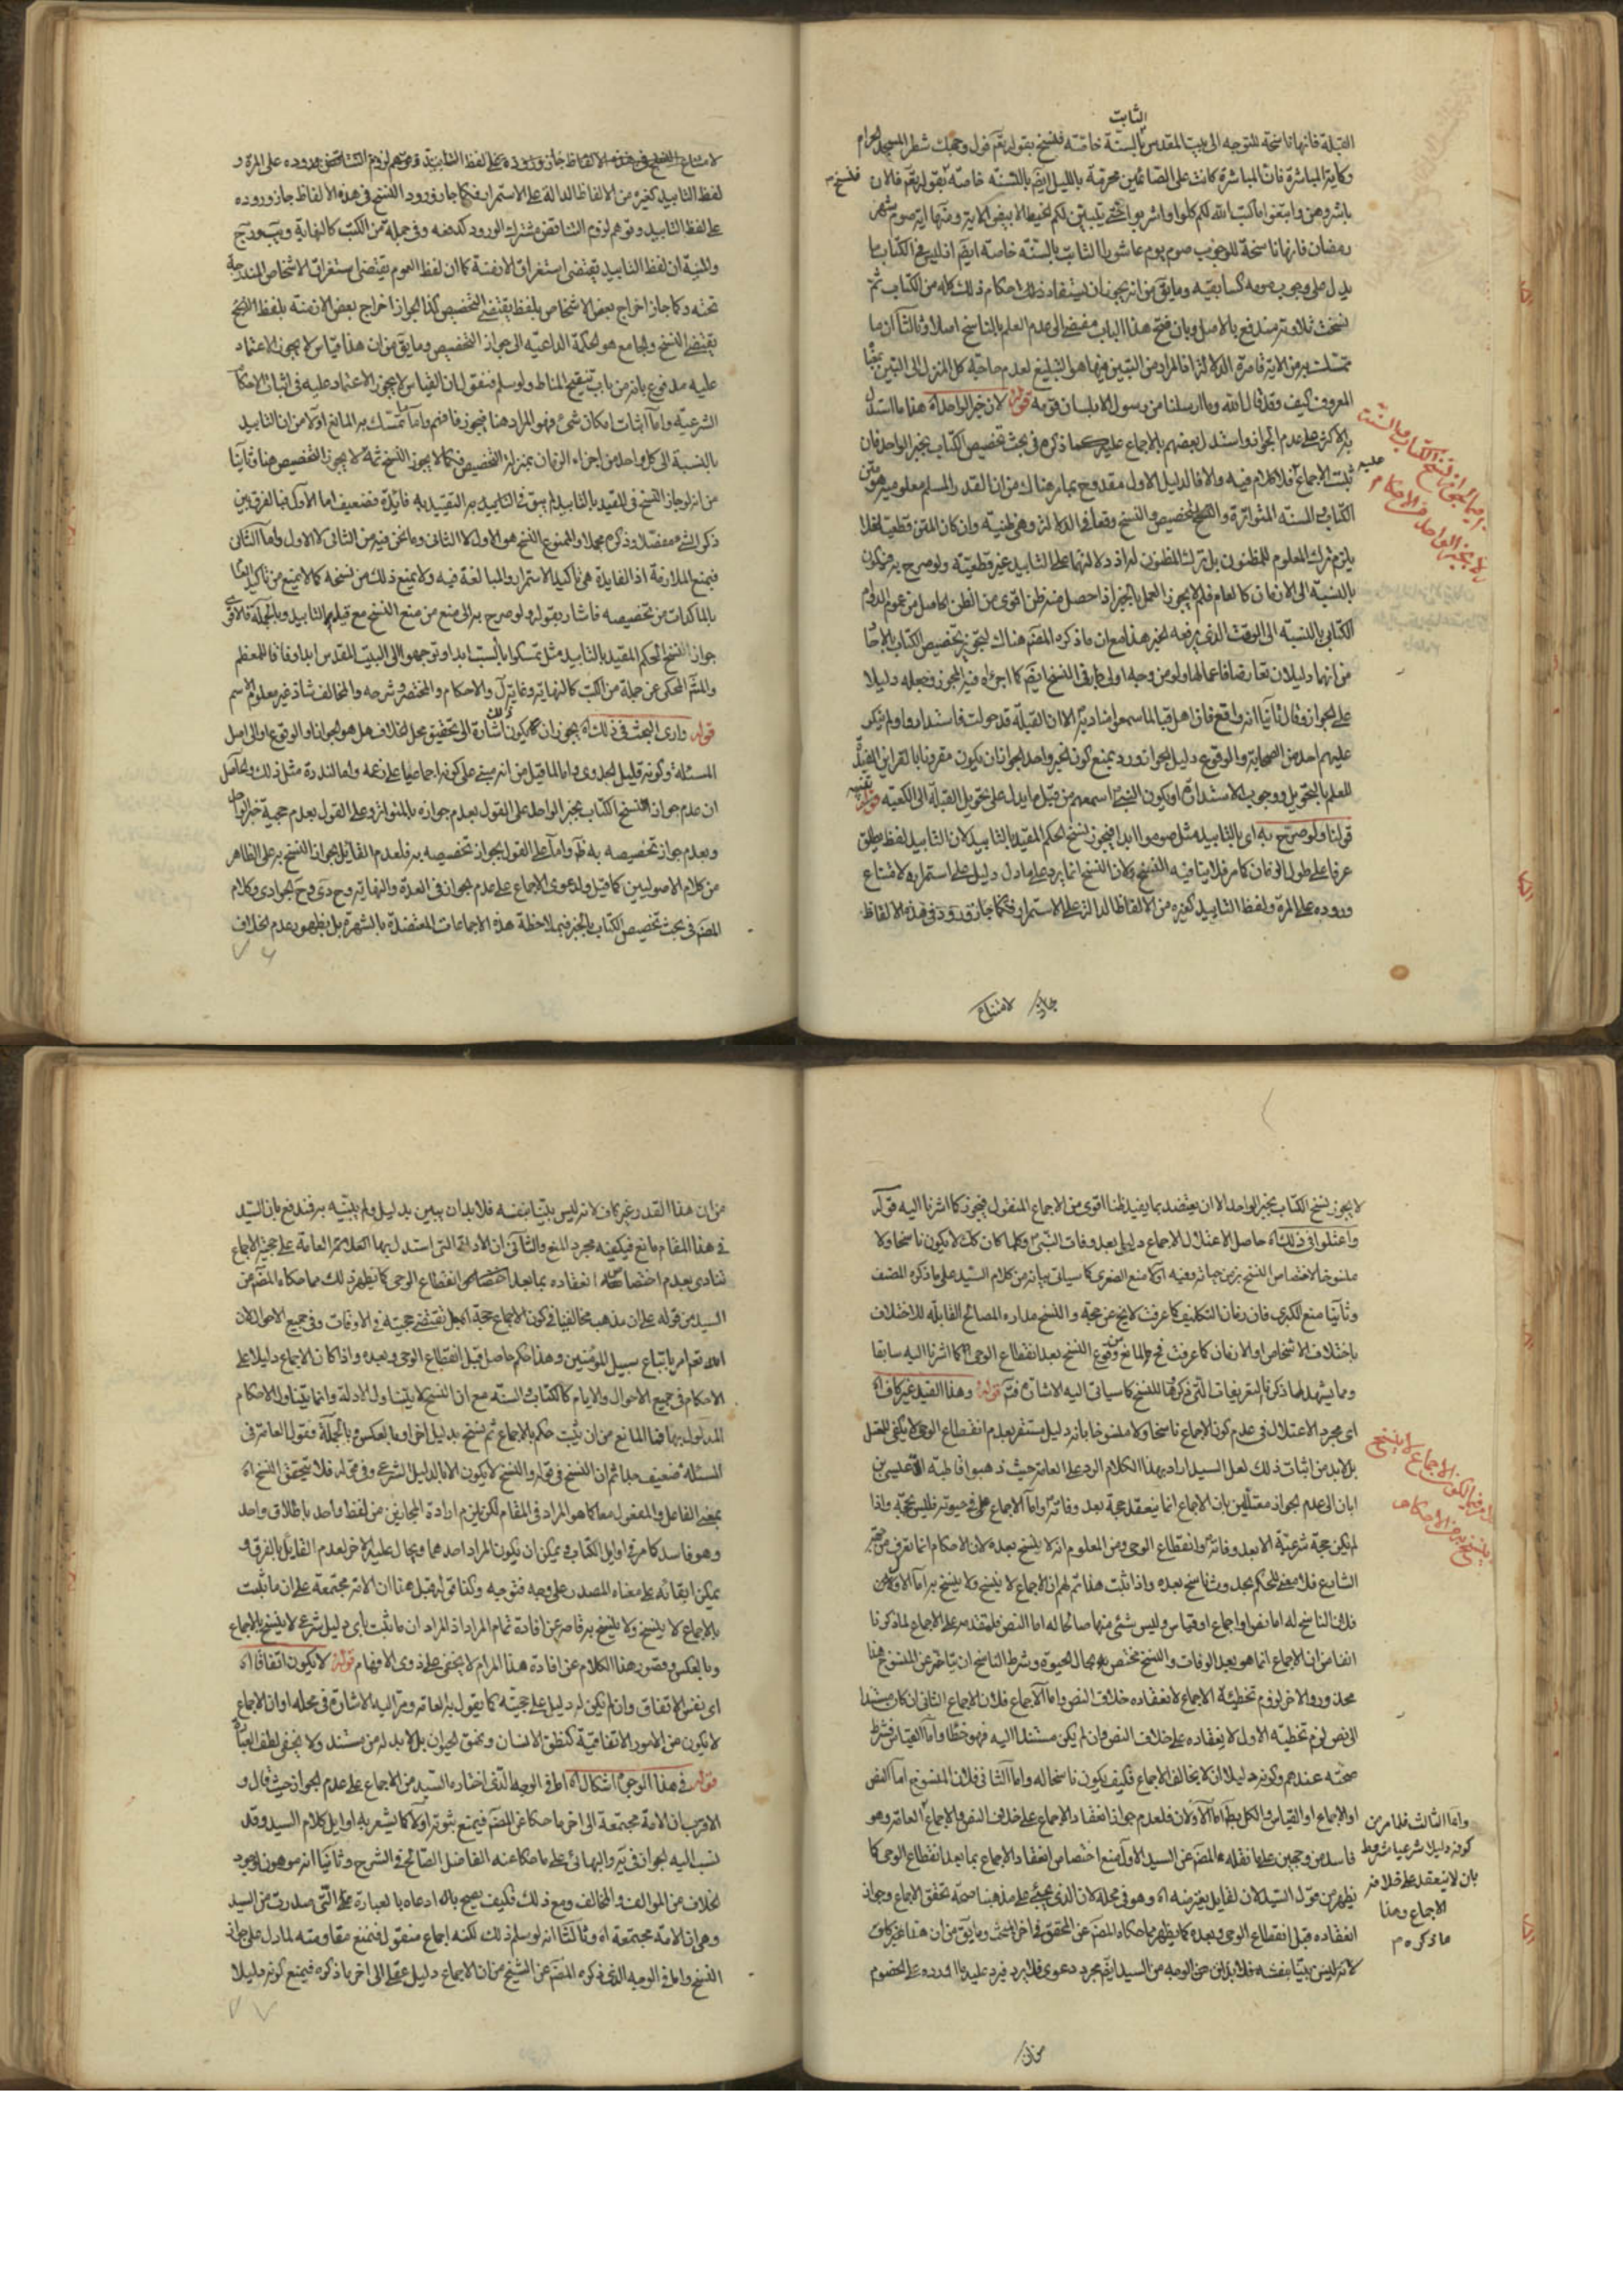 الثابت
القبلة فانها ناسخة للتوجه الى بيت المقدس بالسنة خاصة فنسخ بقوله تقم فول وجهك شطر المسجد الحرام
وكاية المباشرة فان المباشرة كانت على الصائمين محرمة بالليل ايضم بالسنة خاصة بقوله تقم فالان
باشروهن وابتغوا ما كتب الله لكم كلوا واشربوا حتى يتبين لكم الخيط الابيض الاية ومنها اية صوم شهر
رمضان فانها ناسخة لوجوب صوم يوم عاشورا الثابت بالسنة خاصة ايضم اذ ليس في الكتاب ما
يدل على وجوب صومه كسابقيه وما يق من انه يجوز ان يستفاد ذلك احكام ذلك كله من الكتاب ثم
نسخت تلاوته مندفع بالاصل وبان فتح هذا الباب مفيض الى عدم العلم بالناسخ اصلا وثالثا ان ما
تمسكت به من الاية قاصرة الدلالة اذ المراد من التبيين فيها هو التبليغ لعدم حاجة كل المنزل الى التبيين بمعنا
المعروف كيف وقد قال الله وما ارسلنا من رسول الا بلسان قومه قوله لان خبر الواحد اه هذا ما استدل
به الاكثر على عدم الجواز واستدل بعضهم بالاجماع عليه كما ذكره في بحث تخصيص الكتاب بخبر الواحد فان
ثبت الاجماع فلا كلام فيه والا فالدليل الاول مقدوح بما مر هناك من ان القدر المسلم معلوميته هو متن
الكتاب والسنة المتواترة والتخصيص والنسخ وقعا في الدلالة وهى ظنية وان كان المتن قطعيا فلا
يلزم ترك المعلوم للمظنون بل ترك المظنون له اذ دلالتها على التابيد غير قطعية ولو صرح به فيكون
بالنسبة الى الازمان كالعام فلم لا يجوز العمل بالخبر اذا حصل منه ظن اقوى من الظن الحاصل من عموم الدوام
الكتابي بالنسبة الى الوقت الذي يرفعه الخبر هذا مع ان ما ذكره المصم هناك لتجويز تخصيص الكتاب بالاحا
من انهما دليلان تعارضا فاعمالهما ولو من وجه اولى جار في النسخ ايضم كما اجراه فيه المجوز وجعله دليلا
على الجواز وقال ثانيا انه واقع فان اهل قبا لما سمعوا مناديه الا ان القبلة قد حولت فاستداروا ولم ينكر
عليهم احد من الصحابة والوقوع دليل الجواز ورد بمنع كونه خبر واحد لجواز ان يكون مقرونا بالقراين المفيدة
للعلم بالتحويل ووجوب الاستدارة او يكون النبي اسمعهم من قبل ما يدل على تحويل القبلة الى الكعبة قوله
قولنا ولو صرح به اى بالتابيد مثل صوموا ابدا فيجوز نسخ الحكم المقيد بالتابيد لان التابيد لفظ يطلق
عرفا على طول الزمان كما مر فلا ينافيه النسخ ولان النسخ انما يرد على ما دل دليل على استمراره لامتناع
وروده على المرة ولفظ التابيد كغيره من الالفاظ الدالة على الاستمرار فكما جاز وروده في هذه الالفاظ
جاز لامتناع
لفظ التابيد كغيره من الالفاظ الدالة على الاستمرار فكما جاز ورود النسخ في هذه الالفاظ جاز وروده
على لفظ التابيد وتوهم لزوم التناقض مشترك الورود كدفعه وفي جملة من الكتب كالنهاية
والمنية ان لفظ التابيد يقتضى استغراق الازمنة كما ان لفظ العموم يقتضى استغراق الاشخاص المندرجة
تحته وكما جاز اخراج بعض الاشخاص بلفظ يقتضى التخصيص كذا يجوز اخراج بعض الازمنة بلفظ النسخ
يقتضى النسخ والجامع هو الحكمة الداعية الى جواز التخصيص وما يق من ان هذا قياس لا يجوز الاعتماد
عليه مدفوع بانه من باب تنقيح المناط ولو سلم فنقول ان القياس لا يجوز الاعتماد عليه في اثبات الاحكام
الشرعية واما اثبات امكان شئ فهو المراد هنا فيجوز فافهم واما ما تمسك به المانع اولا من ان التابيد
بالنسبة الى كل واحد من اجزاء الزمان بمنزلة التخصيص فكما لا يجوز النسخ ثمة لا يجوز التخصيص هنا وثانيا
من انه لو جاز النسخ في المقيد بالتابيد لم يبق في التابيد به التقييد به فائدة فضعيف اما الاول فبالفرق بين
ذكر الشئ مفصلا وذكره مجملا والممنوع النسخ هو الاول لا الثاني وما نحن فيه من الثاني لا الاول واما الثاني
فبمنع الملازمة اذ الفايدة هى تاكيد الاستمرار والمبالغة فيه ولا يمنع ذلك من نسخه كما لا يمنع من تاكيد العام
بالماكدات من تخصيصه فاشار بقوله ولو صرح به الى منع من منع النسخ مع قيام التابيد وبالجملة فالاقوى
جواز النسخ الحكم المقيد بالتابيد مثل تمسكوا بالسبت ابدا وتوجهوا الى البيت المقدس ابدا وفاقا للمعظم
والمتم المحكى عن جملة من الكتب كالنهاية وغاية ل والاحكام والمختصر وشرحه والمخالف شاذ غير معلوم الاسم
قوله وارى البحث في ذلك اه يجوز ان يكون ذلك اشارة الى تحقيق محل الخلاف هل هو الجواز او الوقوع او الى اصل
المسئلة وكونه قليل الجدوى اما لما قيل من انه مبنى على كونه اجماعيا على زعمه واما لندرة مثل ذلك والحاصل
ان عدم جواز النسخ الكتاب بخبر الواحد على القول بعدم جوازه بالمتواتر وعلى القول بعدم حجية خبر الواحد
وبعدم جواز تخصيصه به ظم واما على القول بجواز تخصيصه به فلعدم القايل بجواز النسخ به على الظاهر
من كلام الاصوليين كما قيل ولدعوى الاجماع على عدم الجواز في العدة والنهاية وكلام
المصم في بحث تخصيص الكتاب بالخبر فبملاحظة هذه الاجماعات المعتضدة بالشهرة بل بظهور عدم الخلاف
لا يجوز نسخ الكتاب بخبر الواحد الا ان يعتضد بما يفيد ظنا اقوى من الاجماع المنقول فيجوز كما اشرنا اليه قوله
واعتلوا في ذلك اه حاصل الاعتلال الاجماع دليل بعد وفات النبي وكلما كان كك لا يكون ناسخا ولا
منسوخا لاختصاص النسخ بزمن حياته وفيه اولا منع الصغرى كما سياتى بيانه من كلام السيد على ما ذكره المصنف
وثانيا منع الكبرى فان زمان التكليف كما عرفت لا يخ عن حجة والنسخ مداره المصالح القابلة للاختلاف
باختلاف الاشخاص او الازمان كما عرفت فح لا مانع من وقوع النسخ بعد انقطاع الوحى كما اشرنا اليه سابقا
ومما يشهد لما ذكرنا التعريفات التي ذكروها للنسخ كما سياتى اليه الاشارة قوله وهذا القيد غير كاف اه
اى مجرد الاعتلال في عدم كون الاجماع ناسخا ولا منسوخا بانه دليل مستقر بعدم انقطاع الوحى لا يكفى للمعتل
بل لا بد من اثبات ذلك لعل السيد اراد بهذا الكلام الرد على العامة حيث ذهبوا قاطبة الا عيسى بن
ابان الى عدم الجواز معتلين بان الاجماع انما ينعقد حجة بعد وفاته واما الاجماع في حيوته فليس بحجة واذا
لم يكن حجة شرعية الا بعد وفاته وانقطاع الوحى ومن المعلوم انه لا ينسخ بعده لان الاحكام انما تعرف من جهة
الشارع فلا معنى للحكم بحدوث ناسخ بعده واذا ثبت هذا تم لهم ان الاجماع لا ينسخ ولا ينسخ به اما الاول
فلان الناسخ له اما نص او اجماع او قياس وليس شئ منها صالحا له اما النص فلتقدمه على الاجماع لما ذكرنا
انفا من ان الاجماع انما هو بعد الوفات والنسخ مختص بحال الحيوة وشرط الناسخ ان يتاخر عن المنسوخ هنا
محذور والاخر لزوم تخطئة الاجماع لانعقاده خلاف النص واما الاجماع فلان الاجماع الثاني ان كان مستندا
الى نص لزم تخطئة الاول لانعقاده على خلاف النص وان لم يكن مستندا اليه فهو خطأ واما القياس فشرط
صحته عندهم وكونه دليلا ان لا يخالف الاجماع فكيف يكون ناسخا له واما الثاني فلان المنسوخ اما النص
او الاجماع او القياس والكل بط اما الاولان فلعدم جواز انعقاد الاجماع على خلاف النص والاجماع العامة وهو
فاسد من وجهين على ما نقله المصم عن السيد الاول منع اختصاص انعقاد الاجماع بما بعد انقطاع الوحى كما
يظهر من قول السيد لان لقايل يعترضه اه وهو في محله لان الذى يجيئى على مذهبنا صحة تحقق الاجماع وجواز
انعقاده قبل انقطاع الوحى وبعده كما يظهر مما حكاه المصم عن المحقق في اخر البحث وما يق من ان هذا غير كاف
لانه ليس بينا بنفسه فلا بد لمن هذا الوجه من السيد ايضم مجرد دعوى فلا يرد عليه ما اورده على الخصوم
واما الثالث فلما مر من
كونه دليلا شرعيا مشروط
بان لا ينعقد على خلافه
الاجماع وهذا
ما ذكره م
من ان
من ان هذا القدر غير كاف لانه ليس بينا بنفسه فلا بد ان يبين بدليل ولم يبينه به فندفع بان السيد
في هذا المقام مانع فيكفيه مجرد المنع والثاني ان الادلة التي استدل بها العلامة العامة على حجية الاجماع
تنادى بعدم اختصاص انعقاده بما بعد انقطاع الوحى كما يظهر ذلك مما حكاه المصم من
السيد من قوله على ان مذهب مخالفينا في كون الاجماع حجة يقتضى حجيته في الاوقات وفي جميع الاحوال لان
الله تعم امر باتباع سبيل المؤمنين وهذا حكم حاصل قبل انقطاع الوحى وبعده واذا كان الاجماع دليلا على
الاحكام في جميع الاحوال والايام كالكتاب والسنة مع ان النسخ لا يتناول الادلة وانما يتناول الاحكام
المدلول بها فما المانع من ان يثبت حكم بالاجماع ثم ينسخ بدليل اخر او بالعكس وبالجملة فقول العامة في
المسئلة ضعيف جدا ثم ان النسخ في قوله والنسخ لا يكون الا بالدليل الشرعى وفي قوله فلا يتحقق النسخ اه
بمعنى الفاعل والمفعول معا كما هو المراد في المقام لكن يلزم ارادة المجازين من لفظ واحد باطلاق واحد
وهو فاسد كما مر في اوايل الكتاب ويمكن ان يكون المراد احدهما ويحال عليه الاخر لعدم القايل بالفرق و
يمكن ابقائه على معناه المصدرى على وجه فتوجه وكذا قوله قبل هذا ان الامة مجتمعة على ان ما ثبت
بالاجماع لا ينسخ ولا ينسخ به قاصر عن افادة تمام المراد اذ المراد ان ما ثبت باى دليل شرعى لا ينسخ بالاجماع
وبالعكس وقصور هذا الكلام عن افادة هذا المرام لا يخفى على ذوى الافهام قوله لا يكون اتفاقا اه
اى نفس الاتفاق وان لم يكن له دليل على حجيته كما يقول به العامة ومر اليه الاشارة في محله او ان الاجماع
لا يكون من الامور الاتفاقية كنطق الانسان ونهق الحيوان بل لا بد له من مستند ولا يخفى لطف العبارة
قوله في هذا الوجه اشكال اه اما في الوجه الذى اختاره السيد من الاجماع على عدم الجواز حيث قال و
الاقرب ان الامة مجتمعة الى اخر ما حكاه عن المصم فبمنع ثبوته اولا كما يشعر به اوايل كلام السيد وقد
نسب اليه الجواز في والبهائى على ما حكاه عنه الفاضل الصالح في الشرح وثانيا انه موهون بوجود
الخلاف من المؤالف والمخالف ومع ذلك فكيف يصح ادعاه بالعبارة التي صدرت من السيد
وهى ان الامة مجتمعة اه وثالثا انه لو سلم ذلك لكنه اجماع منقول فبمنع مقاومته لما دل على جواز
النسخ واما في الوجه الذى ذكره المصم عن الشيخ من ان الاجماع دليل عقلى الى اخر ما ذكره فبمنع كونه دليلا